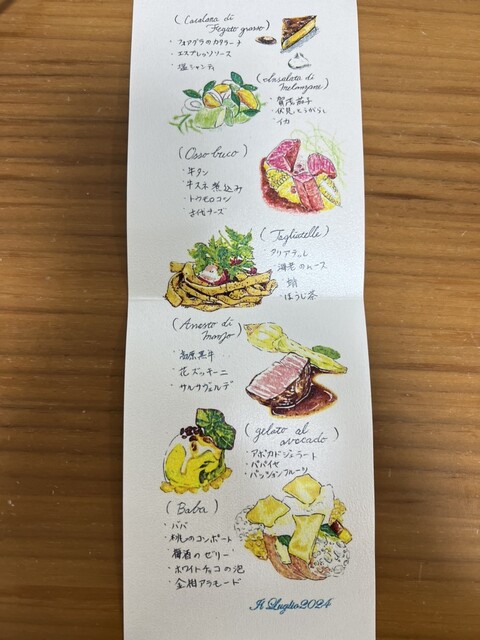 (Catalana di
Fegato grasso)
・フォアグラのカタラーナ
・エスプレッソソース
・塩シャンティ
(Insalata di
melanzane)
・賀茂茄子
・伏見とうがらし
・イカ
(Osso buco)
・牛タン
・牛スネ煮込み
・トウモロコシ
・古代チーズ
(Tagliatelle)
・タリアテッレ
・海老のムース
・蛸
・ほうじ茶
(Arrosto di
manzo)
黒牛
・花ズッキーニ
・サルサヴェルデ
(gelato al
avocado)
・アボカドジェラート
・パパイヤ
・パッションフルーツ
(Baba)
・ババ
・桃のコンポート
・梅酒のゼリー
・ホワイトチョコの泡
・金柑アラモード
Il Luglio2024